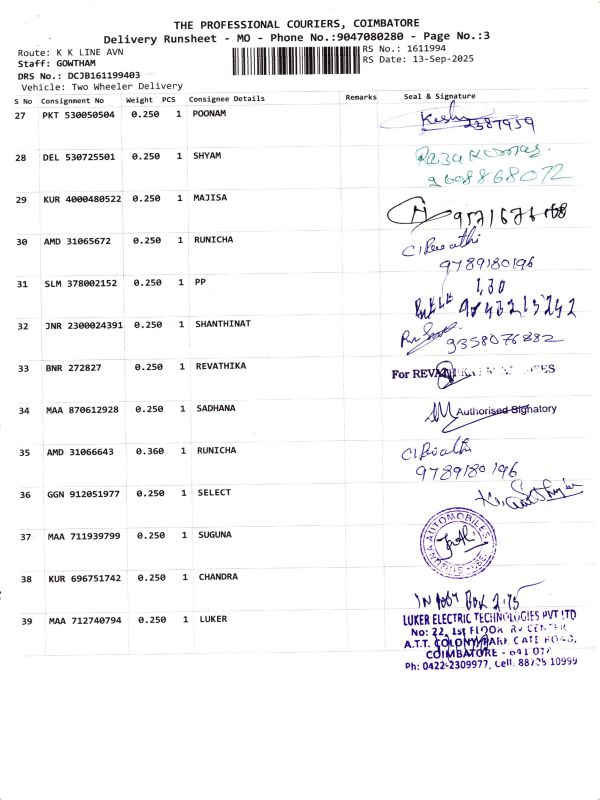 THE PROFESSIONAL COURIERS, COIMBATORE
Delivery Runsheet - MO - Phone No.:9047080280 - Page No.:3
Route: K K LINE AVN
RS No.: 1611994
Staff: GOWTHAM
RS Date: 13-Sep-2025
DRS No.: DCJB161199403
Vehicle: Two Wheeler Delivery
S No Consignment No Weight PCS Consignee Details Remarks Seal & Signature
27 PKT 530050504 0.250 1 POONAM
28 DEL 530725501 0.250 1 SHYAM
9608868072
29 KUR 4000480522 0.250 1 MAJISA
30 AMD 31065672 0.250 1 RUNICHA
9789180196
31 SLM 378002152 0.250 1 PP
1,30
9843215242
32 JNR 2300024391 0.250 1 SHANTHINAT
9358076882
33 BNR 272827 0.250 1 REVATHIKA
For
34 MAA 870612928 0.250 1 SADHANA
Authorised Signatory
35 AMD 31066643 0.360 1 RUNICHA
9789180196
36 GGN 912051977 0.250 1 SELECT
37 MAA 711939799 0.250 1 SUGUNA
AUTOMOBILES
38 KUR 696751742 0.250 1 CHANDRA
39 MAA 712740794 0.250 1 LUKER
LUKER ELECTRIC TECHNOLOGIES PVT LTD
No: 22, 1st FLOOR
A.T.T. COLONY, PARK GATE ROAD,
COIMBATORE -
Ph: 0422-2309977, Cell: